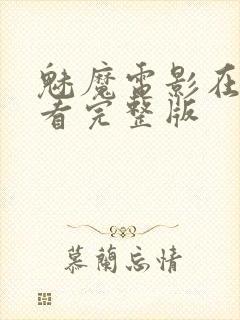 魅魔雷影在
看完整版
慕蘭忘情